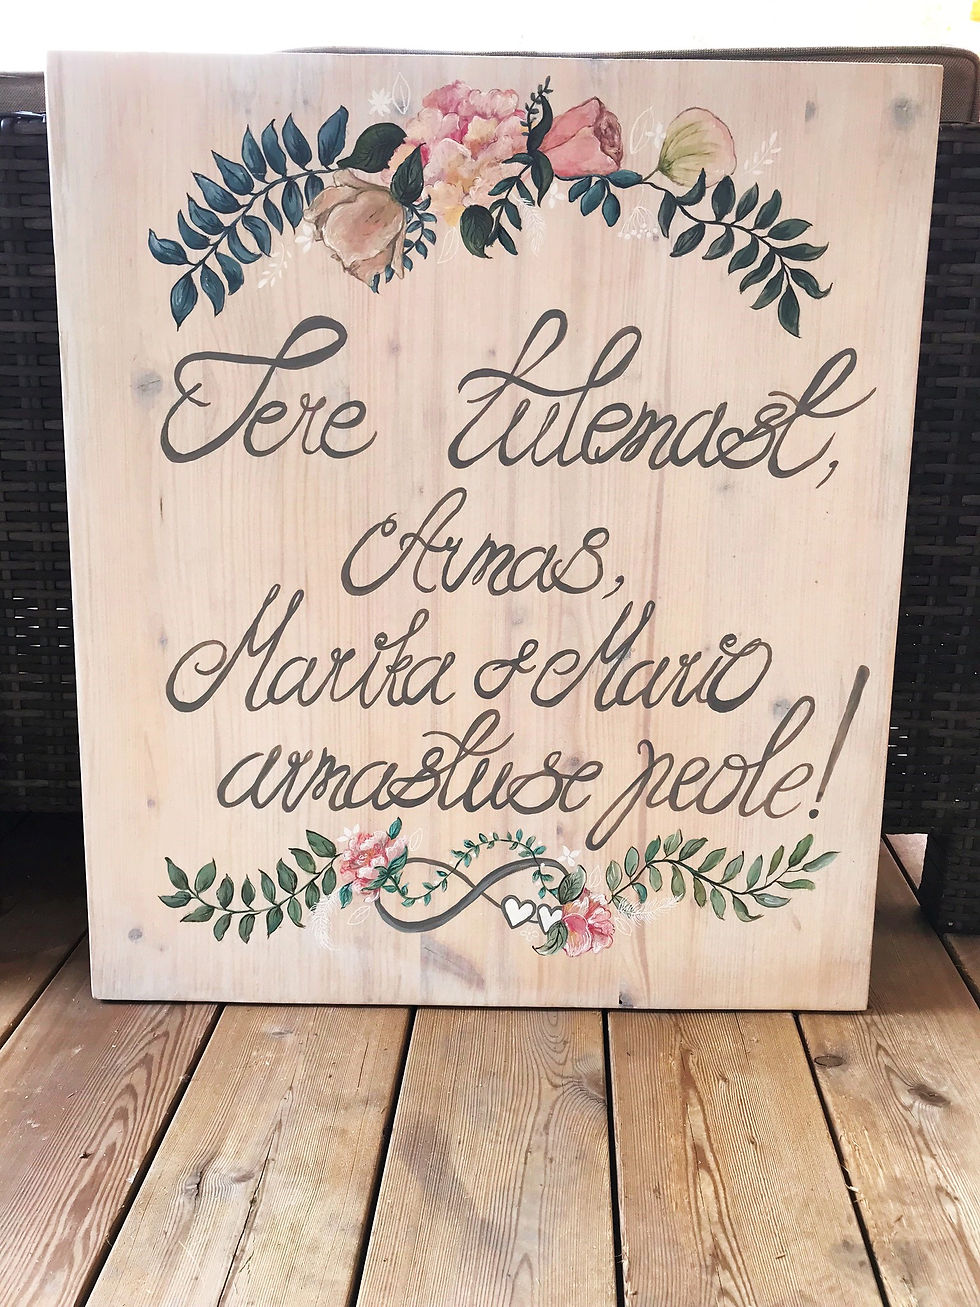 Tere tulemast,
Armas,
Marika & Mario
armastuse peole!